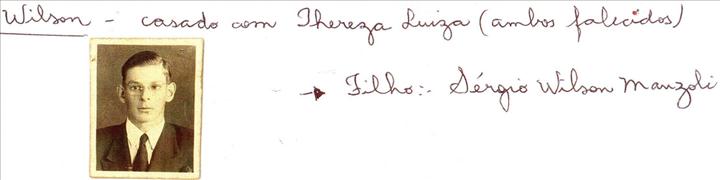 Wilson - casado com Thereza Luiza (ambos falecidos)
→ Filho:- Sérgio Wilson Manzoli